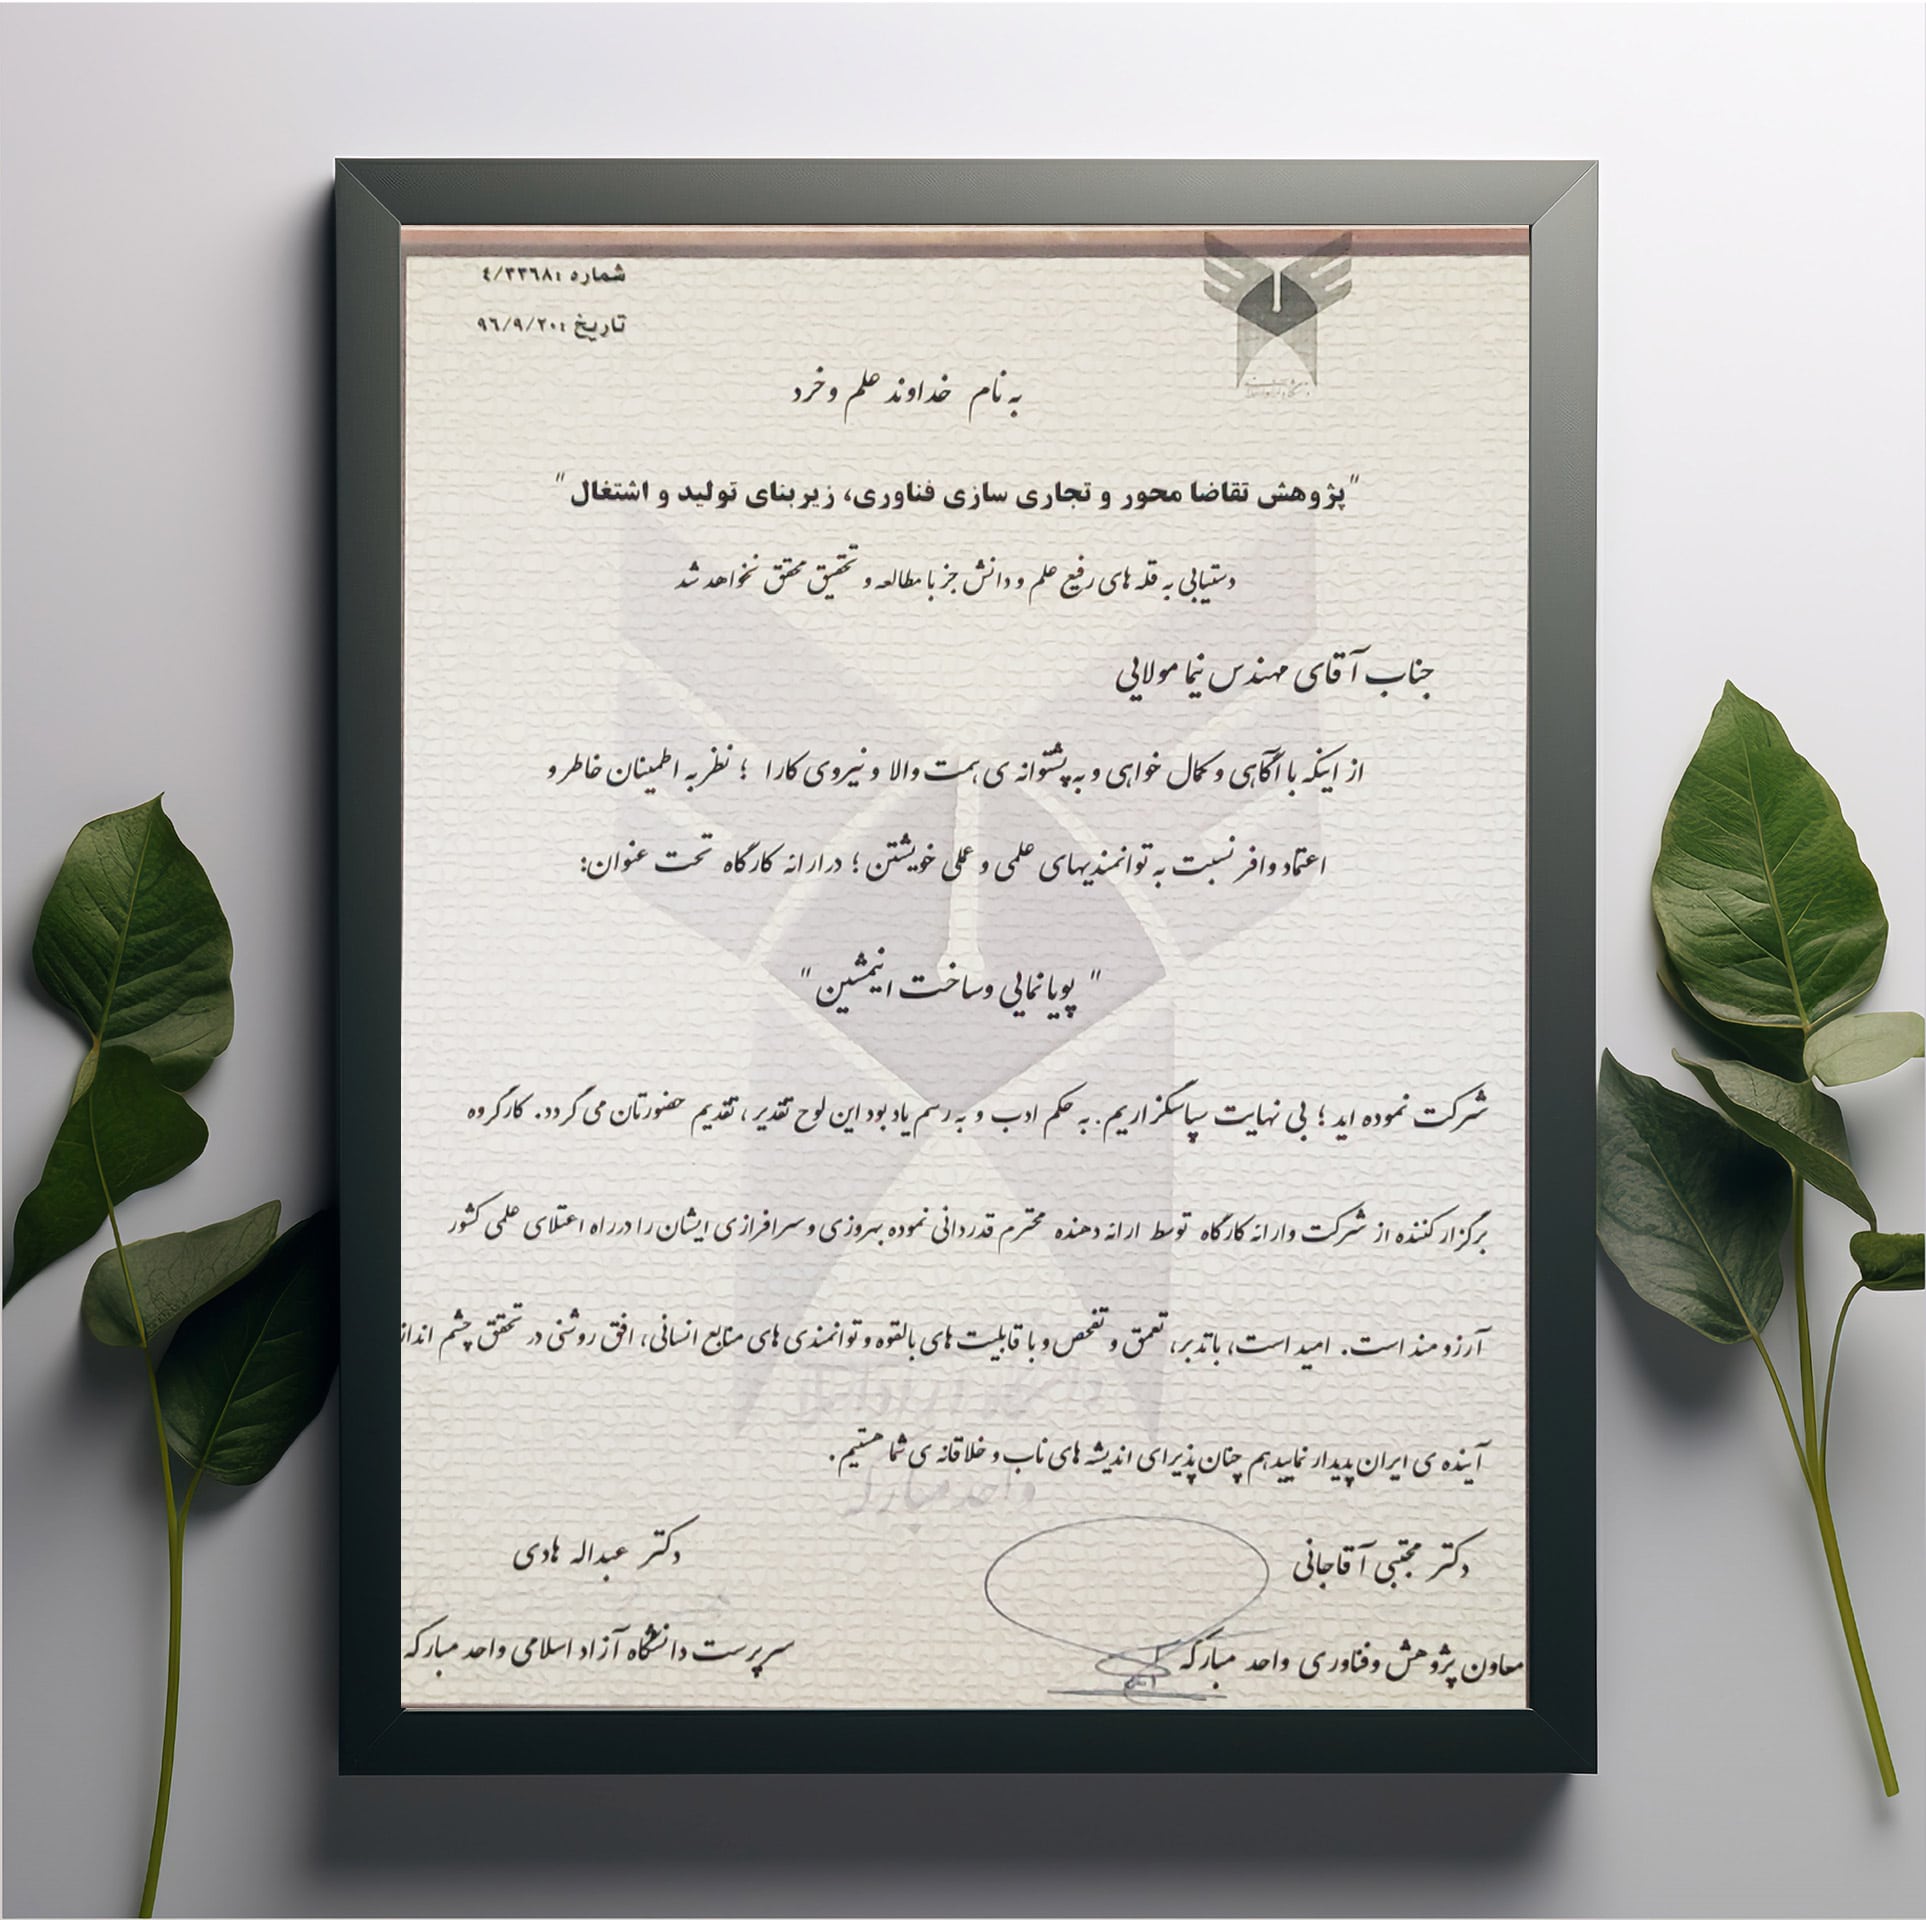 شماره :٤/٣٣٦٨
تاریخ :٩٦/٩/٢٠
به نام خداوند علم و خرد
"پژوهش تقاضا محور و تجاری سازی فناوری، زیربنای تولید و اشتغال"
دستیابی به قله های رفیع علم و دانش جز با مطالعه و تحقیق محقق نخواهد شد
جناب آقای مهندس نیما مولایی
از اینکه با آگاهی و کمال خواهی و به پشتوانه ی همت والا و نیروی کارا ؛ نظر به اطمینان خاطر و
اعتماد وافر نسبت به توانمندیهای علمی و عملی خویشتن ؛ در ارائه کارگاه تحت عنوان:
" پویانمایی و ساخت انیمشین "
شرکت نموده اید ؛ بی نهایت سپاسگزاریم. به حکم ادب و به رسم یاد بود این لوح تقدیر ، تقدیم حضورتان می گردد. کارگروه
برگزار کننده از شرکت و ارائه کارگاه توسط ارائه دهنده محترم قدردانی نموده بهروزی و سرافرازی ایشان را در راه اعتلای علمی کشور
آرزومند است. امید است، با تدبر، تعمق و تفحص و با قابلیت های بالقوه و توانمندی های منابع انسانی، افق روشنی در تحقق چشم انداز
آینده ی ایران پدیدار نمایید هم چنان پذیرای اندیشه های ناب و خلاقانه ی شما هستیم.
واحد مبارکه
دکتر مجتبی آقاجانی
دکتر عبداله هادی
معاون پژوهش و فناوری واحد مبارکه
سرپرست دانشگاه آزاد اسلامی واحد مبارکه